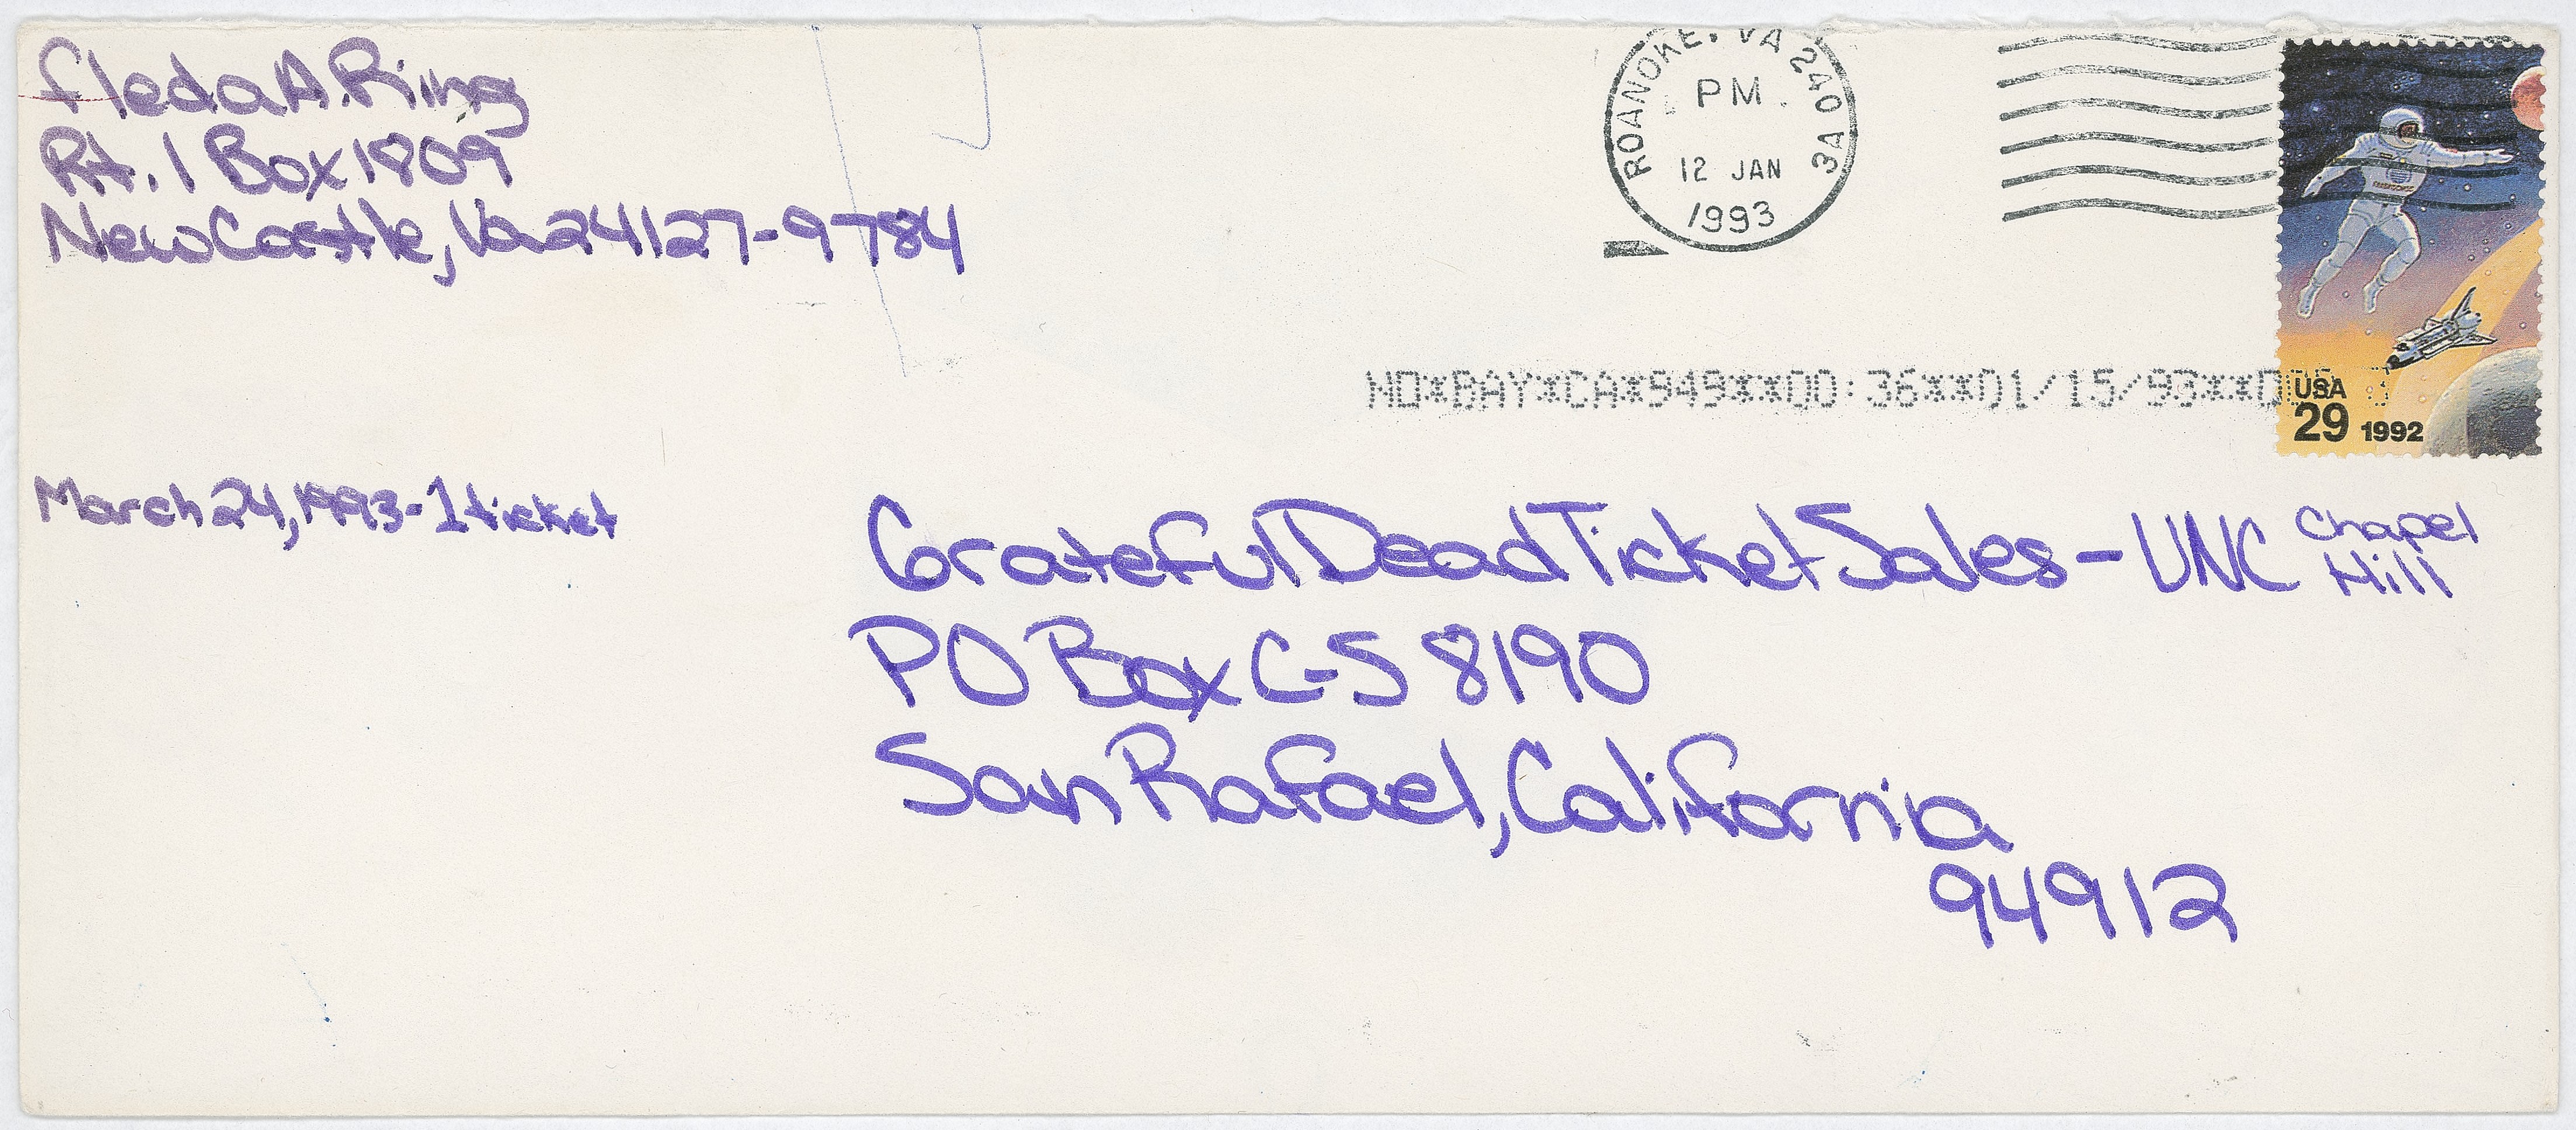 Fleda A. Ring
Rt. 1 Box 1809
New Castle, Va 24127-9784
ROANOKE, VA 240
PM
12 JAN
1993
NO*BAY*CA*949**00:36**01/15/93**
USA
29 1992
March 24, 1993 - 1 ticket
Grateful Dead Ticket Sales - UNC Chapel
Hill
PO Box C-S 8190
San Rafael, California
94912